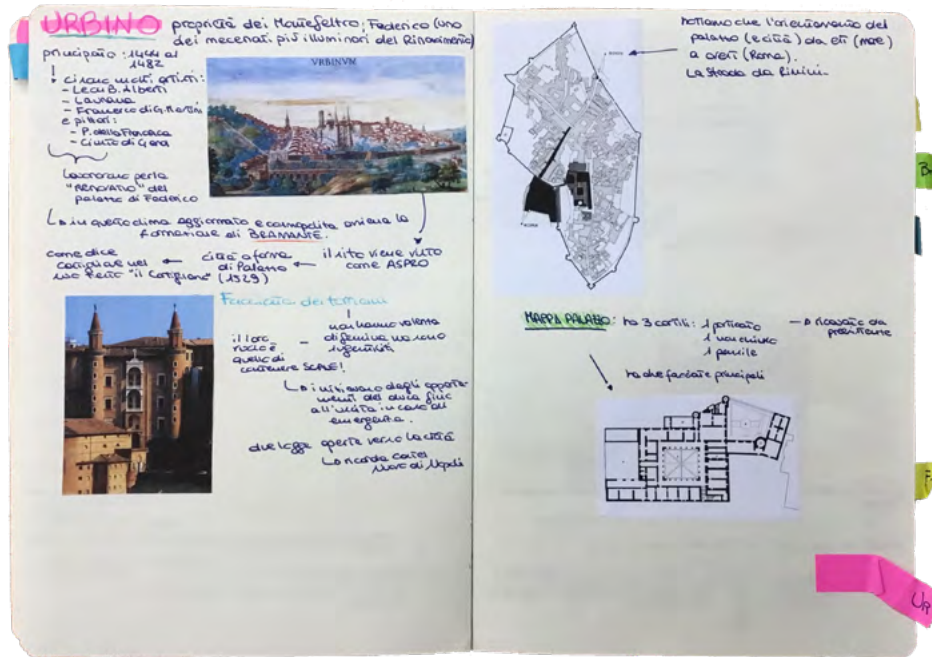 URBINO proprietà dei Montefeltro: Federico (uno
dei mecenati più illuminati del Rinascimento)
principato: 1444 al
1482
ci sono molti artisti:
- Leon B. Alberti
- Laurana
- Francesco di G. Martini
e pittori:
- P. della Francesca
- Giusto di Gand
lavorano per la
"RENOVATIO" del
palazzo di Federico
VRBINVM
in questo clima aggiornato e cosmopolita avviene la
formazione di BRAMANTE.
il sito viene visto
come ASPRO
città a forma
di Palazzo
(1529)
come dice
Castiglione nel
suo testo "il Cortigiano"
Facciata dei torricini
non hanno valenza
difensiva ma sono
il loro
ruolo è
quello di
contenere SCALE!
iniziavano dagli apparta-
menti del duca fino
all'uscita in caso di
emergenza.
due logge aperte verso la città
ricorda Castel
Nuovo di Napoli
notiamo che l'orientamento del
palazzo (e città) da est (mare)
a ovest (Roma).
La strada da Rimini.
RIMINI
ROMA
MAPPA PALAZZO: ha 3 cortili: 1 porticato
1 non chiuso
1 pensile
ha due facciate principali
UR